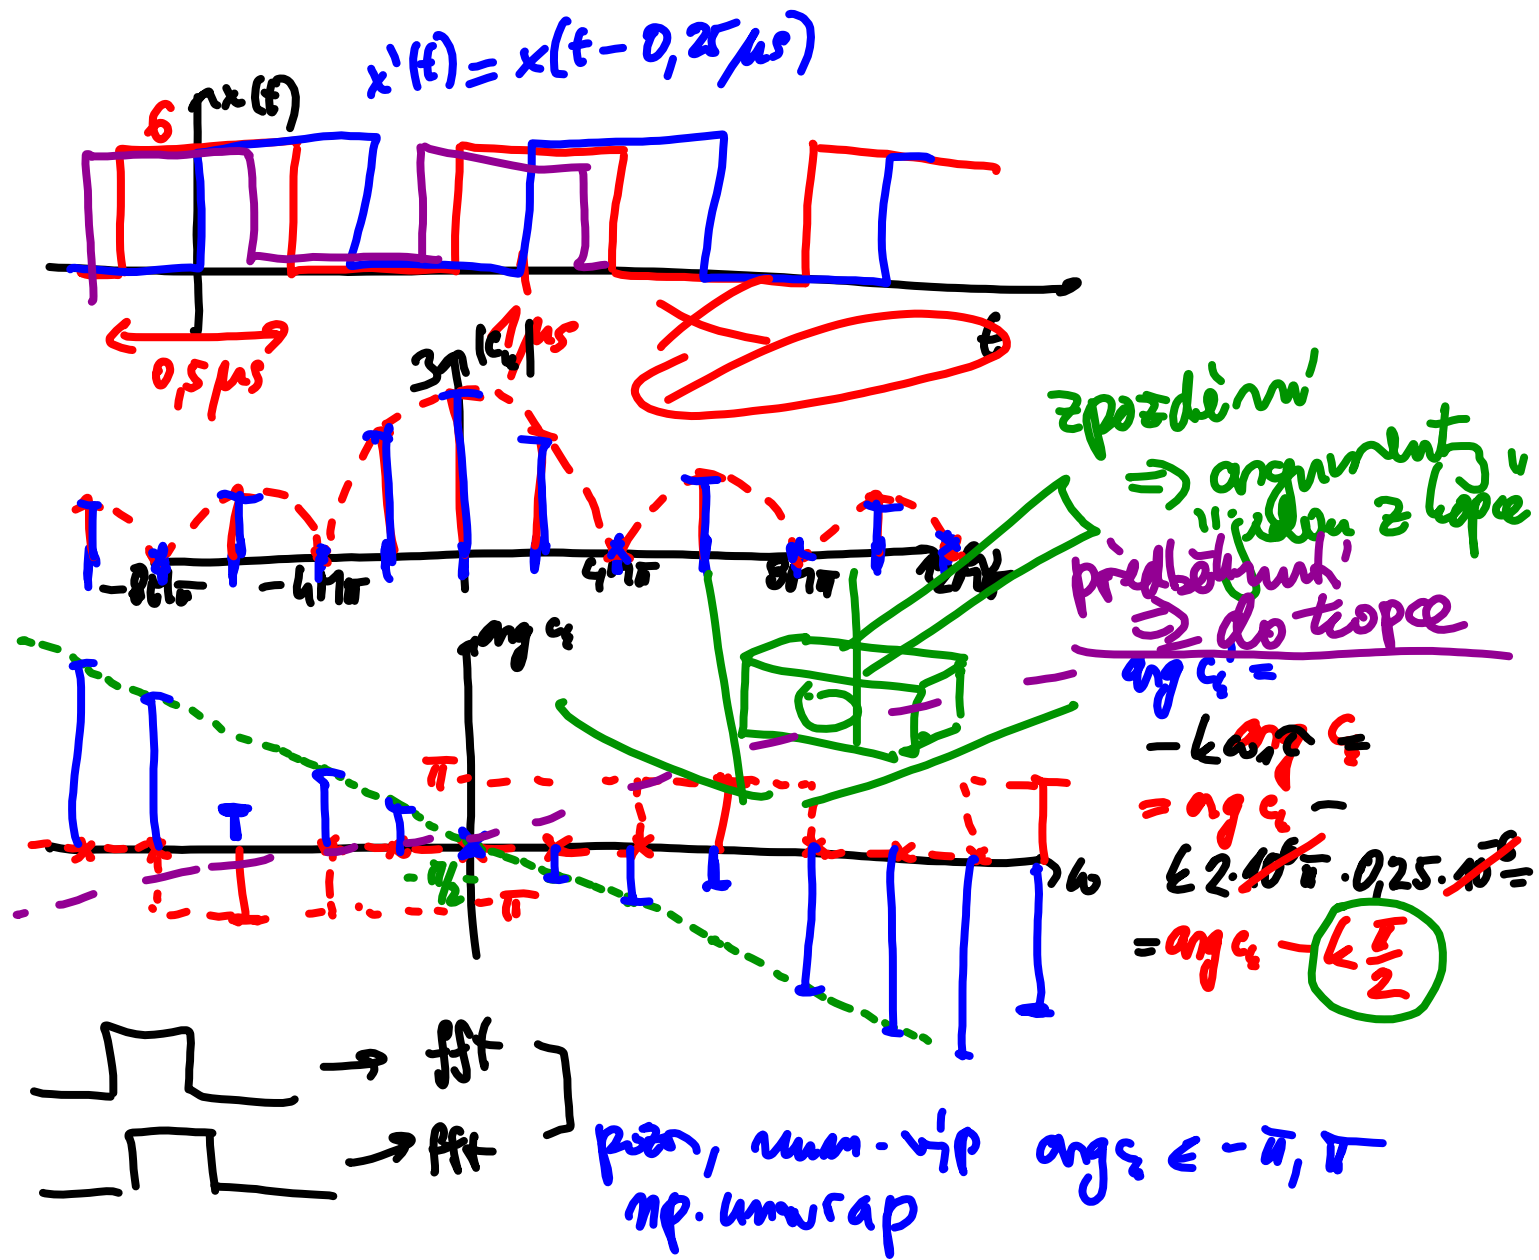 x'(t) = x(t - 0,25 μs)
6
x(t)
0,5 μs
1 μs
t
3
|c_k|
-8Mπ
-4Mπ
4Mπ
8Mπ
zpoždění
⇒ argumenty
"jedou z kopce"
předběhnutí
⇒ do kopce
arg c_k
π
-π/2
π
ω
arg c_k =
-kω₁τ
= arg c_k -
k 2·10⁶π · 0,25 · 10⁻⁶ =
= arg c_k - k π/2
→ fft
→ fft
pozor, num-
arg c_k ∈ -π, π
np.unwrap